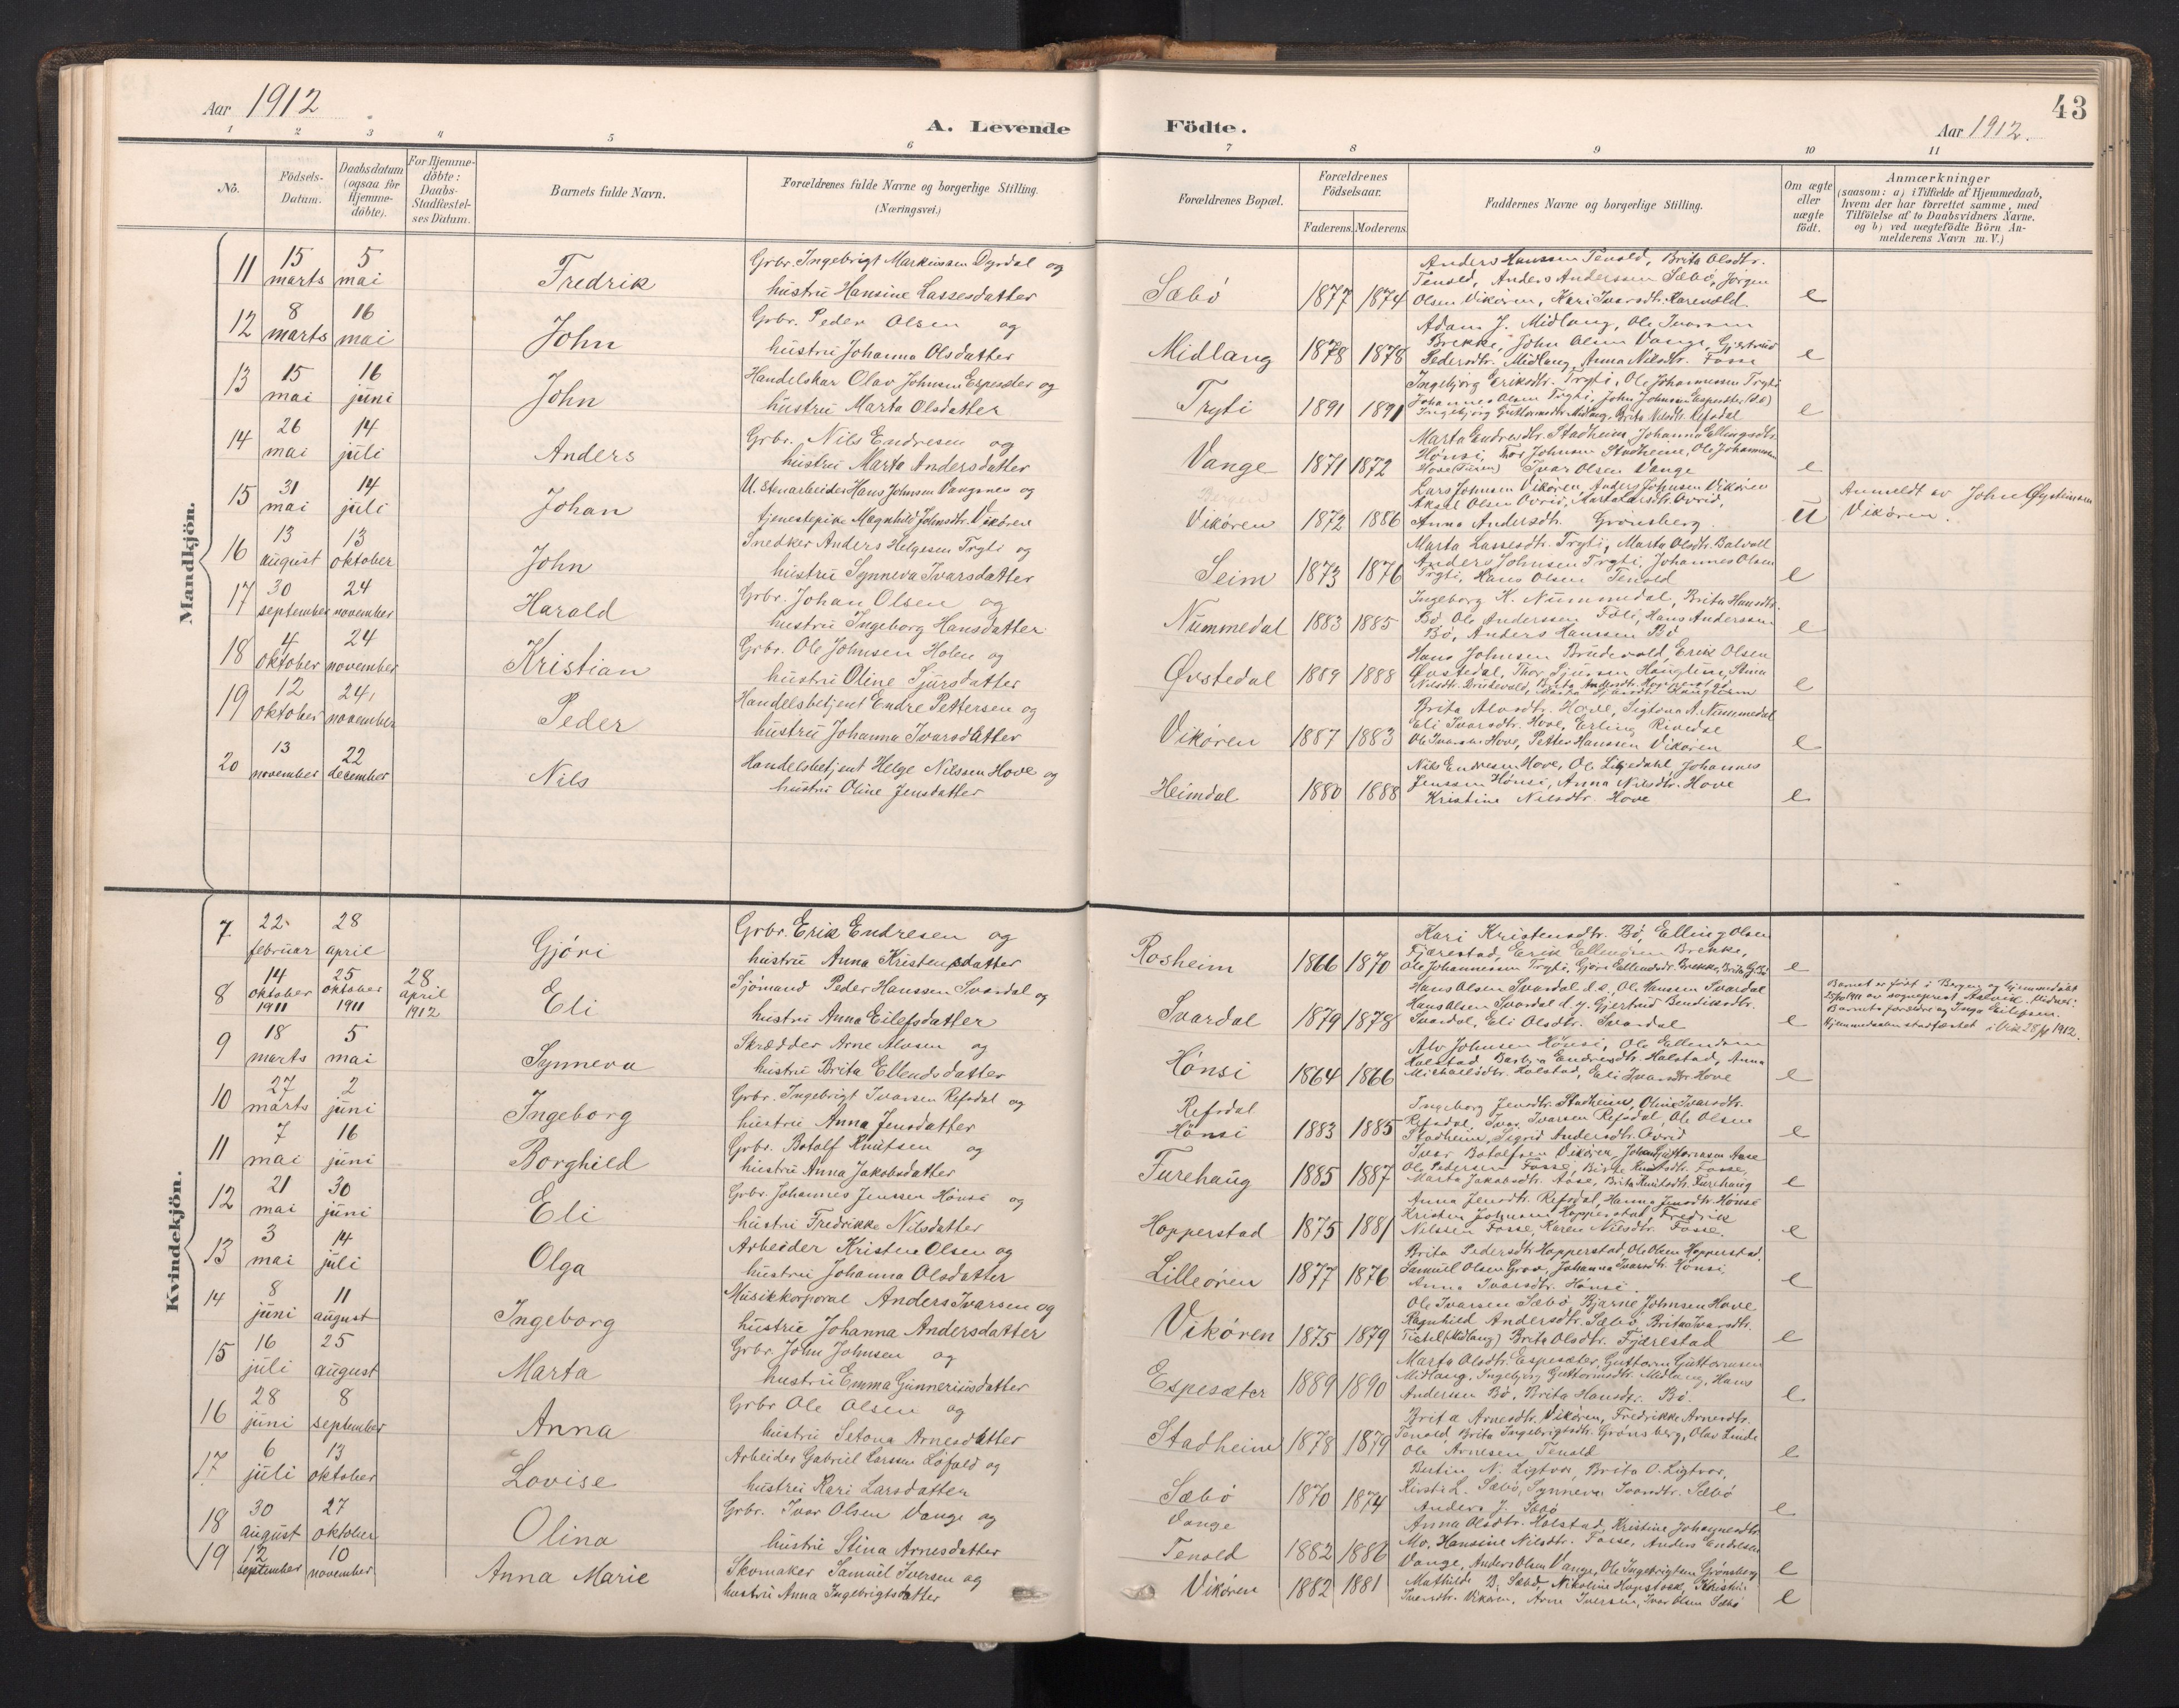 Aar 1912
A. Levende
1 2 3 4 5 6
No.
Födsels-
Datum.
Daabsdatum
(ogsaa for
Hjemme-
döbte).
For Hjemme-
döbte:
Daabs-
Stadfæstel-
ses Datum.
Barnets fulde Navn.
Forældrenes fulde Navne og borgerlige Stilling.
(Næringsvei.)
Mandkjön.
11 15 marts 5 mai Fredrik
Grbr. Ingebrigt Markussen Dyrdal og
hustru Hansine Lassesdatter
12 8 marts 16 mai John
Grbr. Peder Olsen og
hustru Johanna Olsdatter
13 15 mai 16 juni John
Handelskar Olav Johnsen Espesæter og
hustru Marta Olsdatter
14 26 mai 14 juli Anders
Grbr. Nils Endresen og
hustru Marta Andersdatter
15 31 mai 14 juli Johan
U. stenarbeider Hans Johnsen Vangsnes og
tjenestepike Magnhild Johnsdtr. Vikøren
16 13 august 13 oktober John
Snedker Anders Helgesen Tryti og
hustru Synneva Ivarsdatter
17 30 september 24 november Harald
Grbr. Johan Olsen og
hustru Ingeborg Hansdatter
18 4 oktober 24 november Kristian
Grbr. Ole Johnsen Holen og
hustru Oline Sjursdatter
19 12 oktober 24 november Peder
Handelsbetjent Endre Pettersen og
hustru Johanna Ivarsdatter
20 13 november 22 december Nils
Handelsbetjent Helge Nilssen Hove og
hustru Oline Jensdatter
Kvindekjön.
7. 22 februar 28 april Gjöri
Grbr. Erik Endresen og
hustru Anna Kristensdatter
8 14 oktober 1911 25 oktober 1911 28 april 1912 Eli
Sjömand Peder Hanssen Svardal og
hustru Anna Eilefsdatter
9 18 marts 5 mai Synneva
Skrædder Arne Alvsen og
hustru Brita Ellendsdatter
10 27 marts 2 juni Ingeborg
Grbr. Ingebrigt Ivarsen Refsdal og
hustru Anna Jensdatter
11 7 mai 16 juni Borghild
Grbr. Botolf Knutsen og
hustru Anna Jakobsdatter
12 21 mai 30 juni Eli
Grbr. Johannes Jenssen Hönsi og
hustru Fredrikke Nilsdatter
13 3 mai 14 juli Olga
Arbeider Kristen Olsen og
hustru Johanna Olsdatter
14 8 juni 11 august Ingeborg
Musikkorporal Anders Ivarsen og
hustru Johanna Andersdatter
15 16 juli 25 august Marta
Grbr. John Johnsen og
hustru Emma Gunneriusdatter
16 28 juni 8 september Anna
Grbr Ole Olsen og
hustru Setona Arnesdatter
17 6 juli 13 oktober Lovise
Arbeider Gabriel Larssen Lofald og
hustru Kari Larsdatter
18 30 august 27 oktober Olina
Grbr. Ivar Olsen Vange og
hustru Stina Arnesdatter
19 12 september 10 november Anna Marie
Skomaker Samuel Iversen og
hustru Anna Ingebrigtsdatter
43
Födte.
Aar 1912.
7 8 9 10 11
Forældrenes Bopæl.
Forældrenes
Födselsaar.
Faderens. Moderens.
Faddernes Navne og borgerlige Stilling.
Om ægte
eller
uægte
födt.
Anmærkninger
(saasom: a) i Tilfælde af Hjemmedaab,
hvem der har forrettet samme, med
Tilföielse af to Daabsvidners Navne.
og b) ved uægtefödte Börn An-
melderens Navn m. V.)
Sæbö 1877 1874 e
Anders Hanssen Tenold, Brita Olsdtr.
Tenold, Anders Anderssen Sæbö, Jörgen
Olsen Vikören, Kari Ivarsdtr. Karevold.
Midlang 1878 1878 e
Adam J. Midlang, Ole Ivarsen
Brekke, John Olsen Vange, Gjertrud
Pedersdtr. Midlang, Anna Nilsdtr. Fosse
Tryti 1891 1891 e
Ingebjörg Eriksdtr. Tryti, Ole Johannessen Tryti
Johannes Olsen Tryti, John Johnsen Espesæter (d.e)
Ingebjörg Guttormsdtr. Midlang, Brita Nilsdtr. Refsdal
Vange 1871 1872 e
Marta Endresdtr. Stadheim, Johanna Ellingsdtr.
Hönsi, Tor Johnsen Stadheim, Ole Johannessen
Hove (Turen) Ivar Olsen Vange
Bergen
Vikören 1872 1886 u
Lars Johnsen Vikören, Anders Johnsen Vikören
Aksel Olsen Ovrid, Marta Larsdtr. Ovrid,
Anna Andersdtr. Grönsberg.
Anmeldt av John Øysteinsen
Vikören.
Seim 1873 1876 e
Marta Lassesdtr. Tryti, Marta Olsdtr. Balvoll
Anders Johnsen Tryti, Johannes Olsen
Tryti, Hans Olsen Tenold
Nummedal 1883 1885 e
Ingeborg K. Nummedal, Brita Hansdtr.
Bö, Ole Anderssen Foli, Hans Anderssen
Bö, Anders Hanssen Bö
Øvstedal 1889 1888 e
Hans Johnsen Brudevold, Erik Olsen
Øvstedal, Thor Sjursen Haugtun, Stina
Nilsdtr. Brudevold, Brita Andersdtr. Hopperstad
Vikören 1887 1883 e
Brita Alvsdtr. Hove, Sigtona A. Nummedal
Eli Ivarsdtr. Hove, Erling Rivedse
Ole Ivarsen Hove, Petter Hanssen Vikören
Heimdal 1880 1888 e
Nils Endresen Hove, Ole Liljedahl, Johannes
Jenssen Hönsi, Anna Nilsdtr. Hove
Kristine Nilsdtr. Hove
Rosheim 1866 1870 e
Kari Kristensdtr. Bö, Elling Olsen
Fjærestad, Erik Ellendsen Brekke,
Ole Johannessen Tryti, Gjöri Ellendsdtr. Brekke, Brita G. Bö
Svardal 1879 1878 e
Hans Olsen Svardal d.e, Ole Hanssen Svardal
Hans Olsen Svardal d.y. Gjertrud Bendiksdtr.
Svardal, Eli Olsdtr. Svardal
Barnet er födt i Bergen og hjemmedöbt
25/10 1911 av sogneprest Aalvik. Vidner:
Barnets forældre og Inga Eilefsen.
Hjemmedaaben stadfæstet i Vik 28/4 1912.
Hönsi 1864 1866 e
Alv Johnsen Hönsi, Ole Ellendsen
Halstad, Barbra Endresdtr. Halstad, Anna
Michaelsdtr. Halstad, Eli Ivarsdtr. Hove
Refsdal
Hönsi 1883 1885 e
Ingeborg Jensdtr. Stadheim, Oline Ivarsdtr.
Refsdal, Ivar Ivarsen Refsdal, Ole Olsen
Stadheim, Sigrid Andersdtr. Ovrid
Furehaug 1885 1887 e
Ivar Botolfsen Vikören, Johan Guttormsen Aase
Ole Pedersen Fosse, Birte Knutsdtr. Fosse,
Marta Jakobsdtr. Aase, Brita Knutsdtr. Furehaug
Hopperstad 1875 1881 e
Anna Jensdtr. Refsdal, Hanna Jensdtr. Hönsi
Kristen Johnsen Hopperstad, Fredrik
Nilssen Fosse, Karen Nilsdtr. Fosse.
Lilleören 1877 1876 e
Brita Pedersdtr. Hopperstad, Ole Olsen Hopperstad,
Samuel Olsen Grov, Johanna Ivarsdtr. Hönsi,
Anna Ivarsdtr. Hönsi.
Vikören 1875 1879 e
Ole Ivarsen Sæbö, Bjarne Johnsen Hove
Ragnhild Andersdtr. Sæbö, Brita Ivarsdtr.
Tistel (Midlang) Brita Olsdtr. Fjærestad
Espesæter 1889 1890 e
Marta Olsdtr. Espesæter, Guttorm Guttormsen
Midlang, Ingebjörg Guttormsdtr. Midlang, Hans
Andersen Bö, Brita Hansdtr. Bö.
Stadheim 1878 1879 e
Brita Arnesdtr. Vikören, Fredrikke Arnesdtr.
Tenold, Brita Ingebrigtsdtr. Grönsberg, Olav Lunde
Ole Arnesen Tenold
Sæbö 1870 1874 e
Bertin N. Ligtvor, Brita O. Ligtvor,
Kirsti L. Sæbö, Synneva Ivarsdtr. Sæbö
Anders J. Sæbö
Vange
Tenold 1882 1886 e
Anna Olsdtr. Halstad, Kristine Johannesdtr.
Mo, Hansine Nilsdtr. Fosse, Anders Endresen
Vange, Anders Olsen Vange, Ole Ingebrigtsen Grönsberg
Vikören 1882 1881 e
Mathilde B. Sæbö, Nikoline Hopstock, Kristi
Ivarsdtr. Vikören, Arne Iversen, Ivar Olsen Sæbö